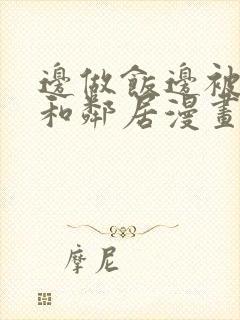 邊做飯邊被
和鄰居漫畫
摩尼